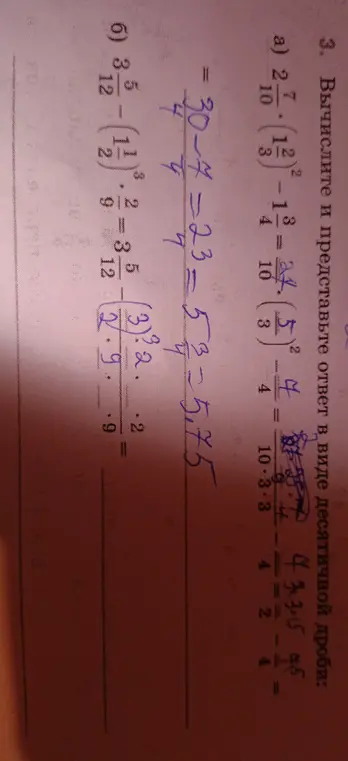 3. Вычислите и представьте ответ в виде десятичной дроби:
а) 2 7/10 · (1 2/3)² − 1 3/4 = 27/10 · (5/3)² − 7/4 = /10·3·3 − /4 = /2 − /4 =
= 30/4 − 7/4 = 23/4 = 5 3/4 = 5,75
б) 3 5/12 − (1 1/2)³ · 2/9 = 3 5/12 − (3)³ 2 · · 2/2 · 9 · · 9 =